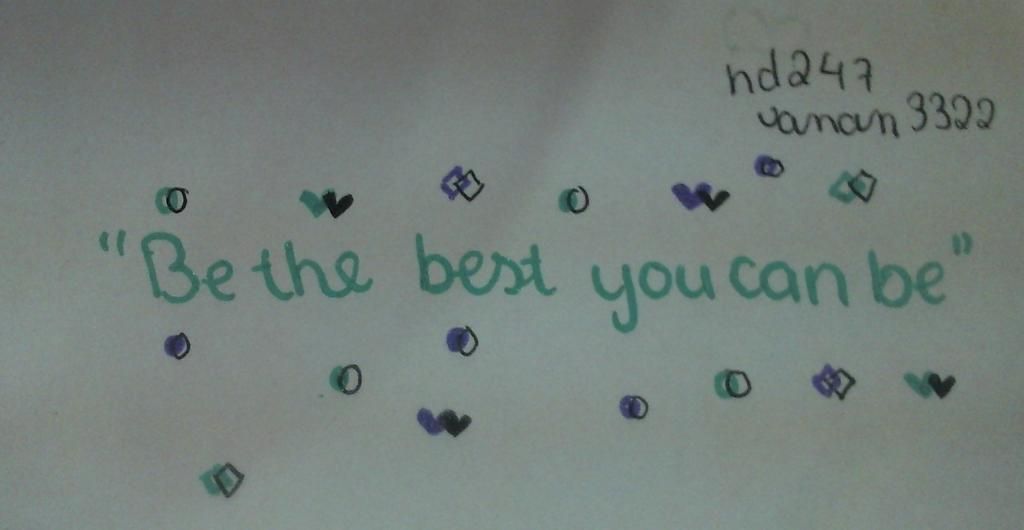 nd247
vanan3322
"Be the best you can be"